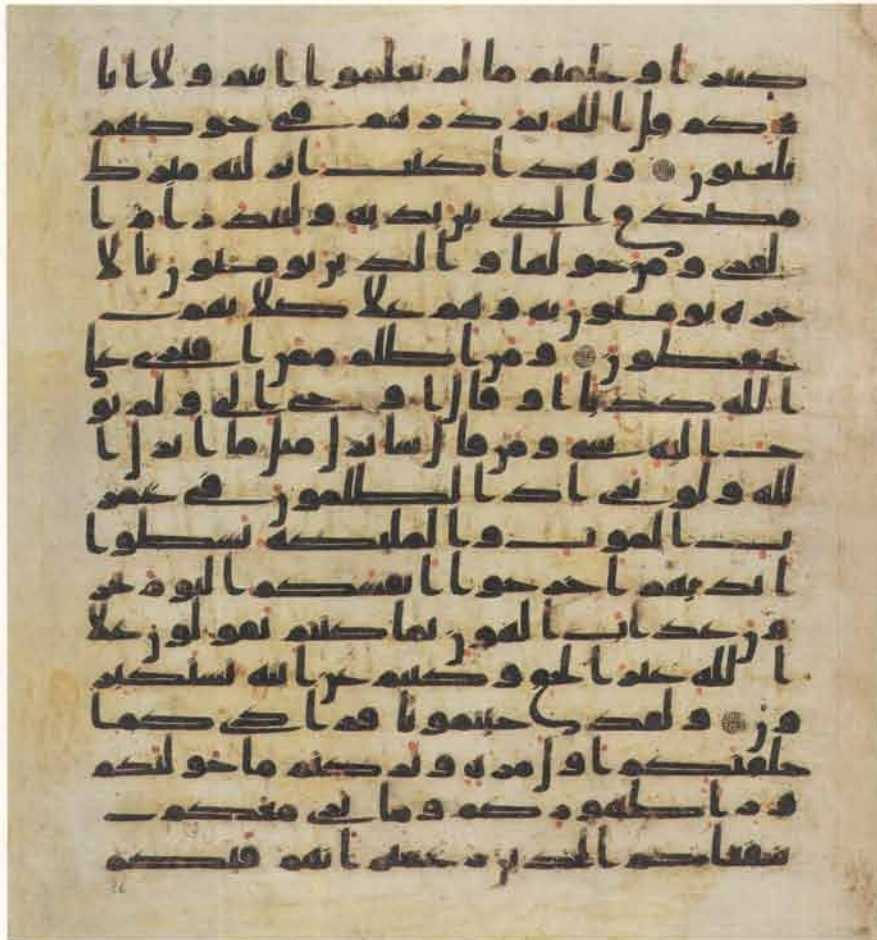 كثيرا وعلمتم ما لم تعلموا انتم ولا ابا
وكم قل الله ثم ذرهم في خوضهم
يلعبون وهذا كتب انزلنه مبرك
مصدق الذي بين يديه ولتنذر ام ا
لقرى ومن حولها والذين يومنون بالا
خرة يومنون به وهم علا صلاتهم يـ
حفظون ومن اظلم ممن افترى علا
الله كذبا او قال اوحي الي ولم يو
ح اليه شي ومن قال سانزل مثل ما انزل ا
لله ولو ترى اذ الظلمون في غمر
ت الموت والمليكة بسطوا
ايديهم اخرجوا انفسكم اليوم تجز
ون عذاب الهون بما كنتم تقولون علا
الله غير الحق وكنتم عن ايته تستكبر
ون ولقد جيتمونا فردى كما
خلقنكم اول مرة وتركتم ما خولنكم
ورا ظهوركم وما نرى معكم
شفعاكم الذين زعمتم انهم فيكم
26